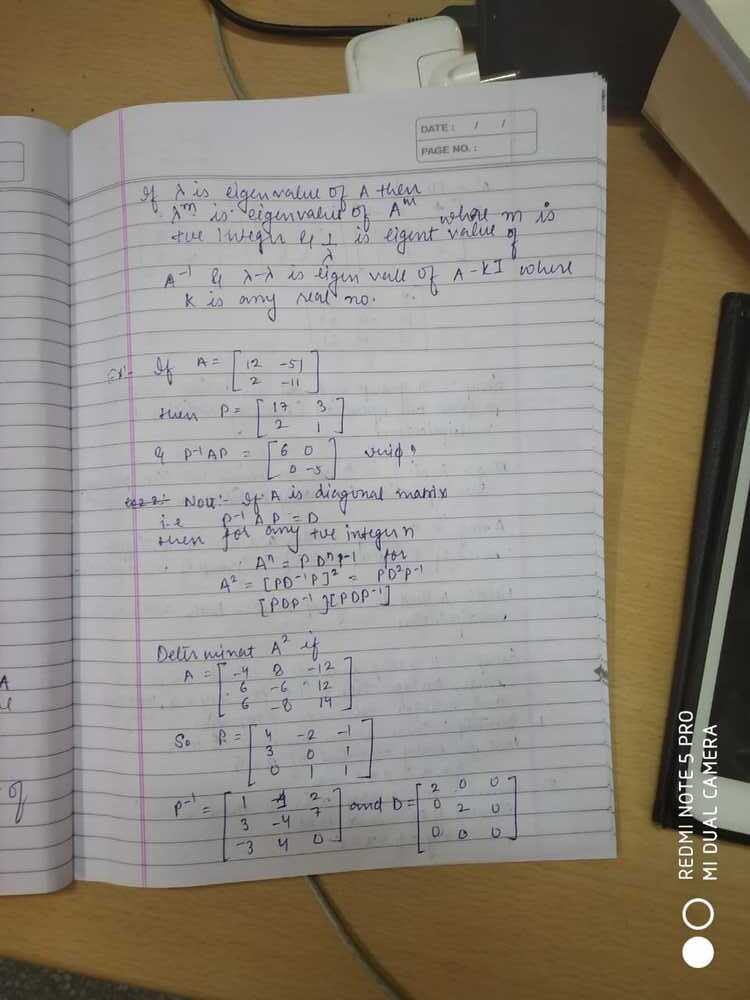 DATE : / /
PAGE NO. :
If λ is eigenvalue of A then
λ^m is eigenvalue of A^m where m is
+ve Integer & 1/λ is eigent value of
A^-1 & λ-λ is eigen vale of A-KI where
K is any real no.
If A = [12 -51
2 -11]
then P = [17 3
2 1]
& P^-1AP = [6 0
0 -5]
Note:- If A is diagonal matrix
i.e P^-1 A P = D
then for any +ve integer n
A^n = P D^n P^-1 for
A^2 = [PD^-1P]^2 = PD^2P^-1
[PDP^-1][PDP^-1]
Determinat A^2 if
A = [-4 8 -12
6 -6 12
6 -8 14]
So P = [4 -2 -1
3 0 1
0 1 1]
P^-1 = [1 2
3 -4 7
-3 4 0] and D = [2 0 0
0 2 0
0 0 0]
A
of
REDMI NOTE 5 PRO
MI DUAL CAMERA